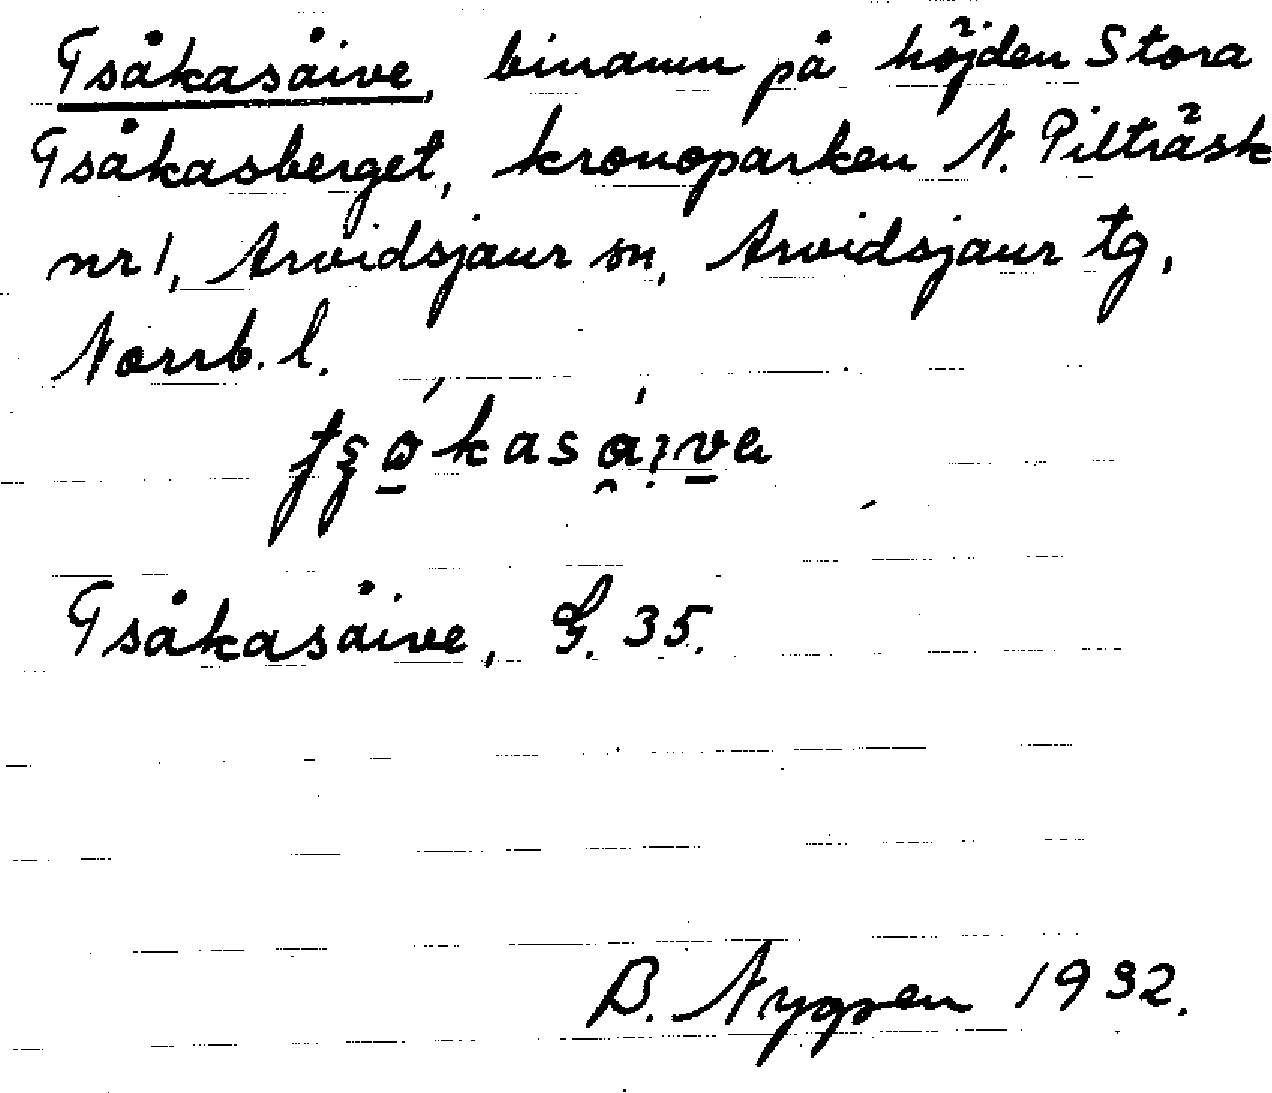 Tsåkasåive, binamn på höjden Stora
Tsåkasberget, kronoparken N. Pilträsk
nr 1, Arvidsjaur sn, Arvidsjaur tg,
Norrb. l.
Tsåkasåive, G. 35.
B. Nygren 1932.